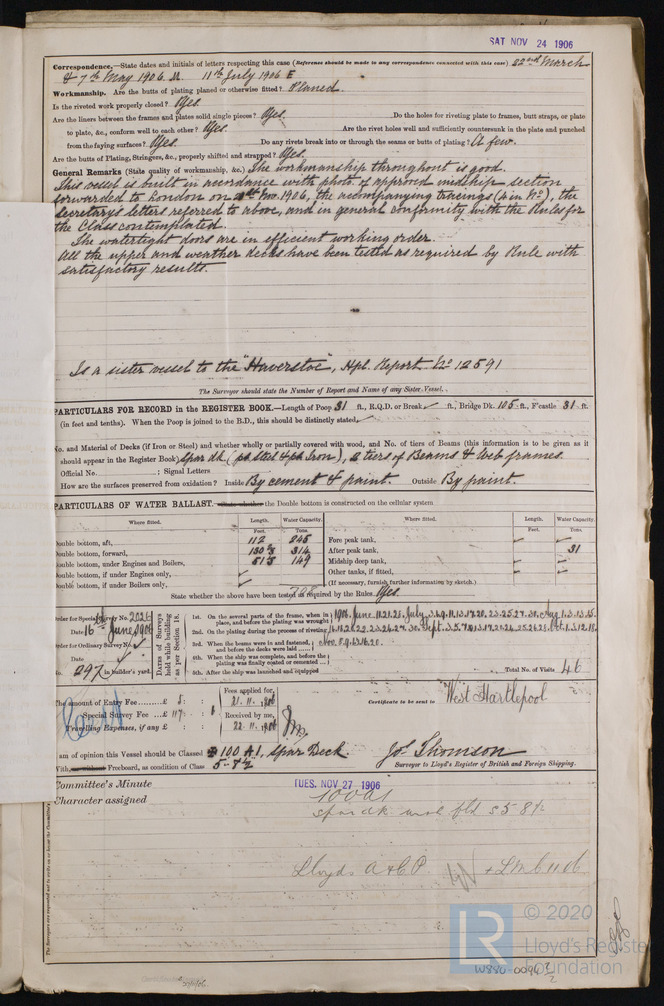 SAT NOV 24 1906
Correspondence,—State dates and initials of letters respecting this case (Reference should be made to any correspondence connected with this case) 22nd March
& 7th May 1906. M. 11th July 1906 E
Workmanship. Are the butts of plating planed or otherwise fitted? Planed.
Is the riveted work properly closed? Yes.
Are the liners between the frames and plates solid single pieces? Yes. Do the holes for riveting plate to frames, butt straps, or plate
to plate, &c., conform well to each other? Yes. Are the rivet holes well and sufficiently countersunk in the plate and punched
from the faying surfaces? Yes. Do any rivets break into or through the seams or butts of plating? A few.
Are the butts of Plating, Stringers, &c., properly shifted and strapped? Yes.
General Remarks (State quality of workmanship, &c.) The workmanship throughout is good.
This vessel is built in accordance with photo. of approved midship section
forwarded to London on 1906, the accompanying tracings (4 in No), the
Secretarys letters referred to above, and in general conformity with the Rules for
the Class contemplated.
The watertight doors are in efficient working order.
All the upper and weather decks have been tested as required by Rule with
satisfactory results.
Is a sister vessel to the "Haverstoe", Hpl. Report No 12591
The Surveyor should state the Number of Report and Name of any Sister Vessel.
PARTICULARS FOR RECORD in the REGISTER BOOK.—Length of Poop 31 ft., R.Q.D. or Break ft., Bridge Dk. 105 ft., F'castle 31 ft.
(in feet and tenths). When the Poop is joined to the B.D., this should be distinctly stated
No. and Material of Decks (if Iron or Steel) and whether wholly or partially covered with wood, and No. of tiers of Beams (this information is to be given as it
should appear in the Register Book) Spar dk (pt steel & pt Iron), 2 tiers of Beams & Web frames.
Official No. ; Signal Letters
How are the surfaces preserved from oxidation? Inside By cement & paint. Outside By paint.
PARTICULARS OF WATER BALLAST.—State whether the Double bottom is constructed on the cellular system
Where fitted. Length. Water Capacity. Where fitted. Length. Water Capacity.
Feet. Tons. Feet. Tons.
Double bottom, aft, 112 245 Fore peak tank,
Double bottom, forward, 314 After peak tank, 31
Double bottom, under Engines and Boilers, 149 Midship deep tank,
Double bottom, if under Engines only, Other tanks, if fitted,
Double bottom, if under Boilers only, (If necessary, furnish further information by sketch.)
State whether the above have been tested as required by the Rules Yes.
Order for Special Survey No. 2026
Date 16th June 1906
Order for Ordinary Survey No.
Date
No. 297 in builder's yard.
Dates of Surveys held while building as per Section 18.
1st. On the several parts of the frame, when in place, and before the plating was wrought
2nd. On the plating during the process of riveting
3rd. When the beams were in and fastened, and before the decks were laid
4th. When the ship was complete, and before the plating was finally coated or cemented
5th. After the ship was launched and equipped
Total No. of Visits 46
The amount of Entry Fee £ 5 : : Fees applied for, 21.11.1906
Special Survey Fee £ 117 : Received by me, 22.11.1906
Travelling Expenses, if any £ : :
Certificate to be sent to West Hartlepool
I am of opinion this Vessel should be Classed ✠ 100 A1, Spar Deck
With Freeboard, as condition of Class 5-8½
Jos Thomson
Surveyor to Lloyd's Register of British and Foreign Shipping.
Committee's Minute TUES. NOV 27 1906
Character assigned 100A1
Lloyds A & C P + LMC 11.06
© 2020
LR Lloyd's Register
Foundation